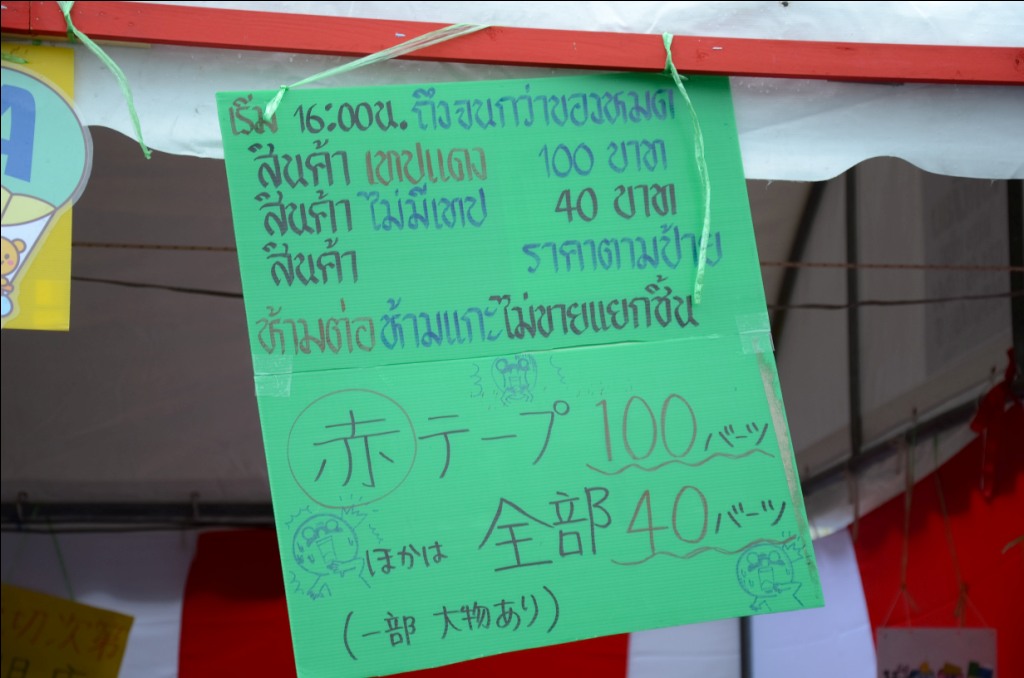 เริ่ม 16:00น. ถึงจนกว่าของหมด
สินค้า เทปแดง 100 บาท
สินค้า ไม่มีเทป 40 บาท
สินค้า ราคาตามป้าย
ห้ามต่อ ห้ามแกะ ไม่ขายแยกชิ้น
赤テープ 100 バーツ
ほかは 全部 40 バーツ
(一部 大物あり)
A
切次第